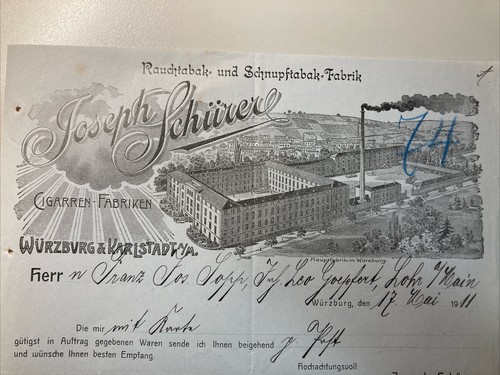 Rauchtabak- und Schnupftabak-Fabrik
Joseph Schürer
74
CIGARREN-FABRIKEN
WÜRZBURG & KARLSTADT a/M.
Hauptfabrik in Würzburg.
Herrn Franz Jos. Sopp, Inh. Leo Goepfert, Lohr a/Main
Würzburg, den 17. Mai 1911
Die mir mit Karte
gütigst in Auftrag gegebenen Waren sende ich Ihnen beigehend p. Post
und wünsche Ihnen besten Empfang.
Hochachtungsvoll